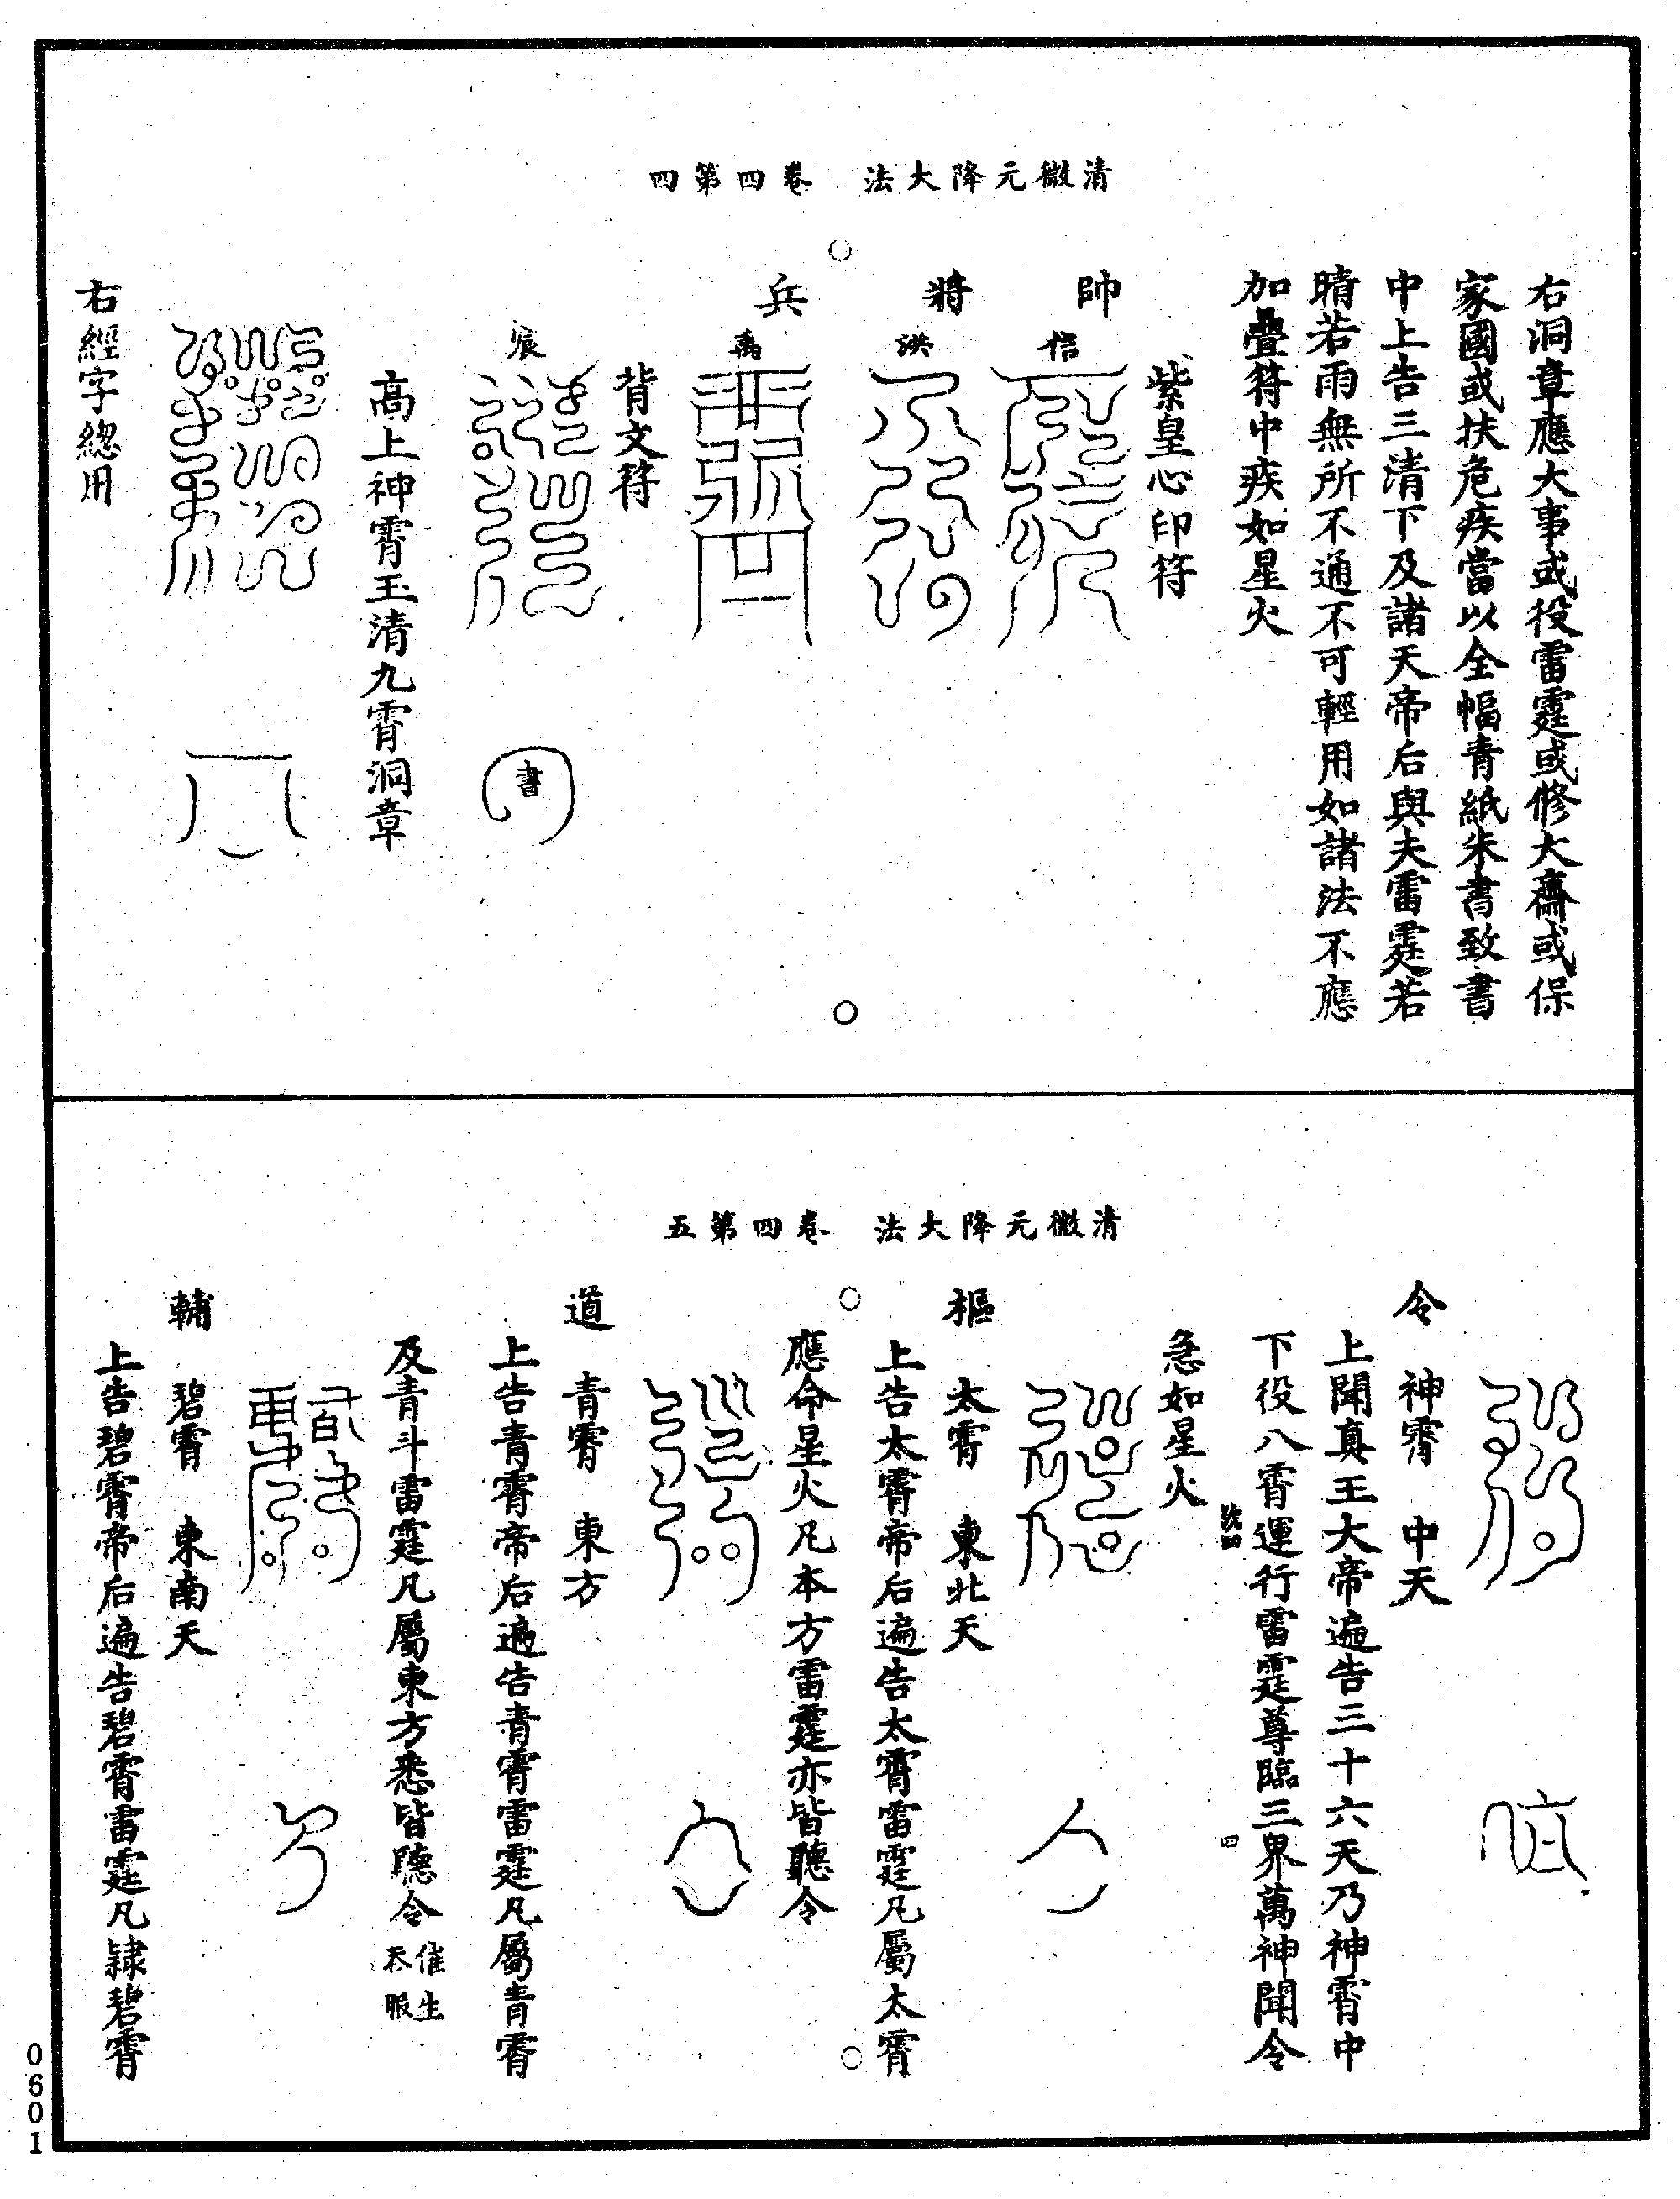 清微元降大法　卷四第四
右洞章應大事或役雷霆或修大齋或保
家國或扶危疾當以全幅青紙朱書致書
中上告三清下及諸天帝后與夫雷霆若
晴若雨無所不通不可輕用如諸法不應
加疊符中疾如星火
紫皇心印符
帥　信
將　洪
兵　禹
背文符
宸
書
高上神霄玉清九霄洞章
右經字總用
清微元降大法　卷四第五
令　神霄　中天
上聞真王大帝遍告三十六天乃神霄中
下役八霄運行雷霆尊臨三界萬神聞令
四
急如星火
樞　太霄　東北天
上告太霄帝后遍告太霄雷霆凡屬太霄
應命星火凡本方雷霆亦皆聽令
道　青霄　東方
上告青霄帝后遍告青霄雷霆凡屬青霄
及青斗雷霆凡屬東方悉皆聽令 催生吞服
輔　碧霄　東南天
上告碧霄帝后遍告碧霄雷霆凡隸碧霄
0601